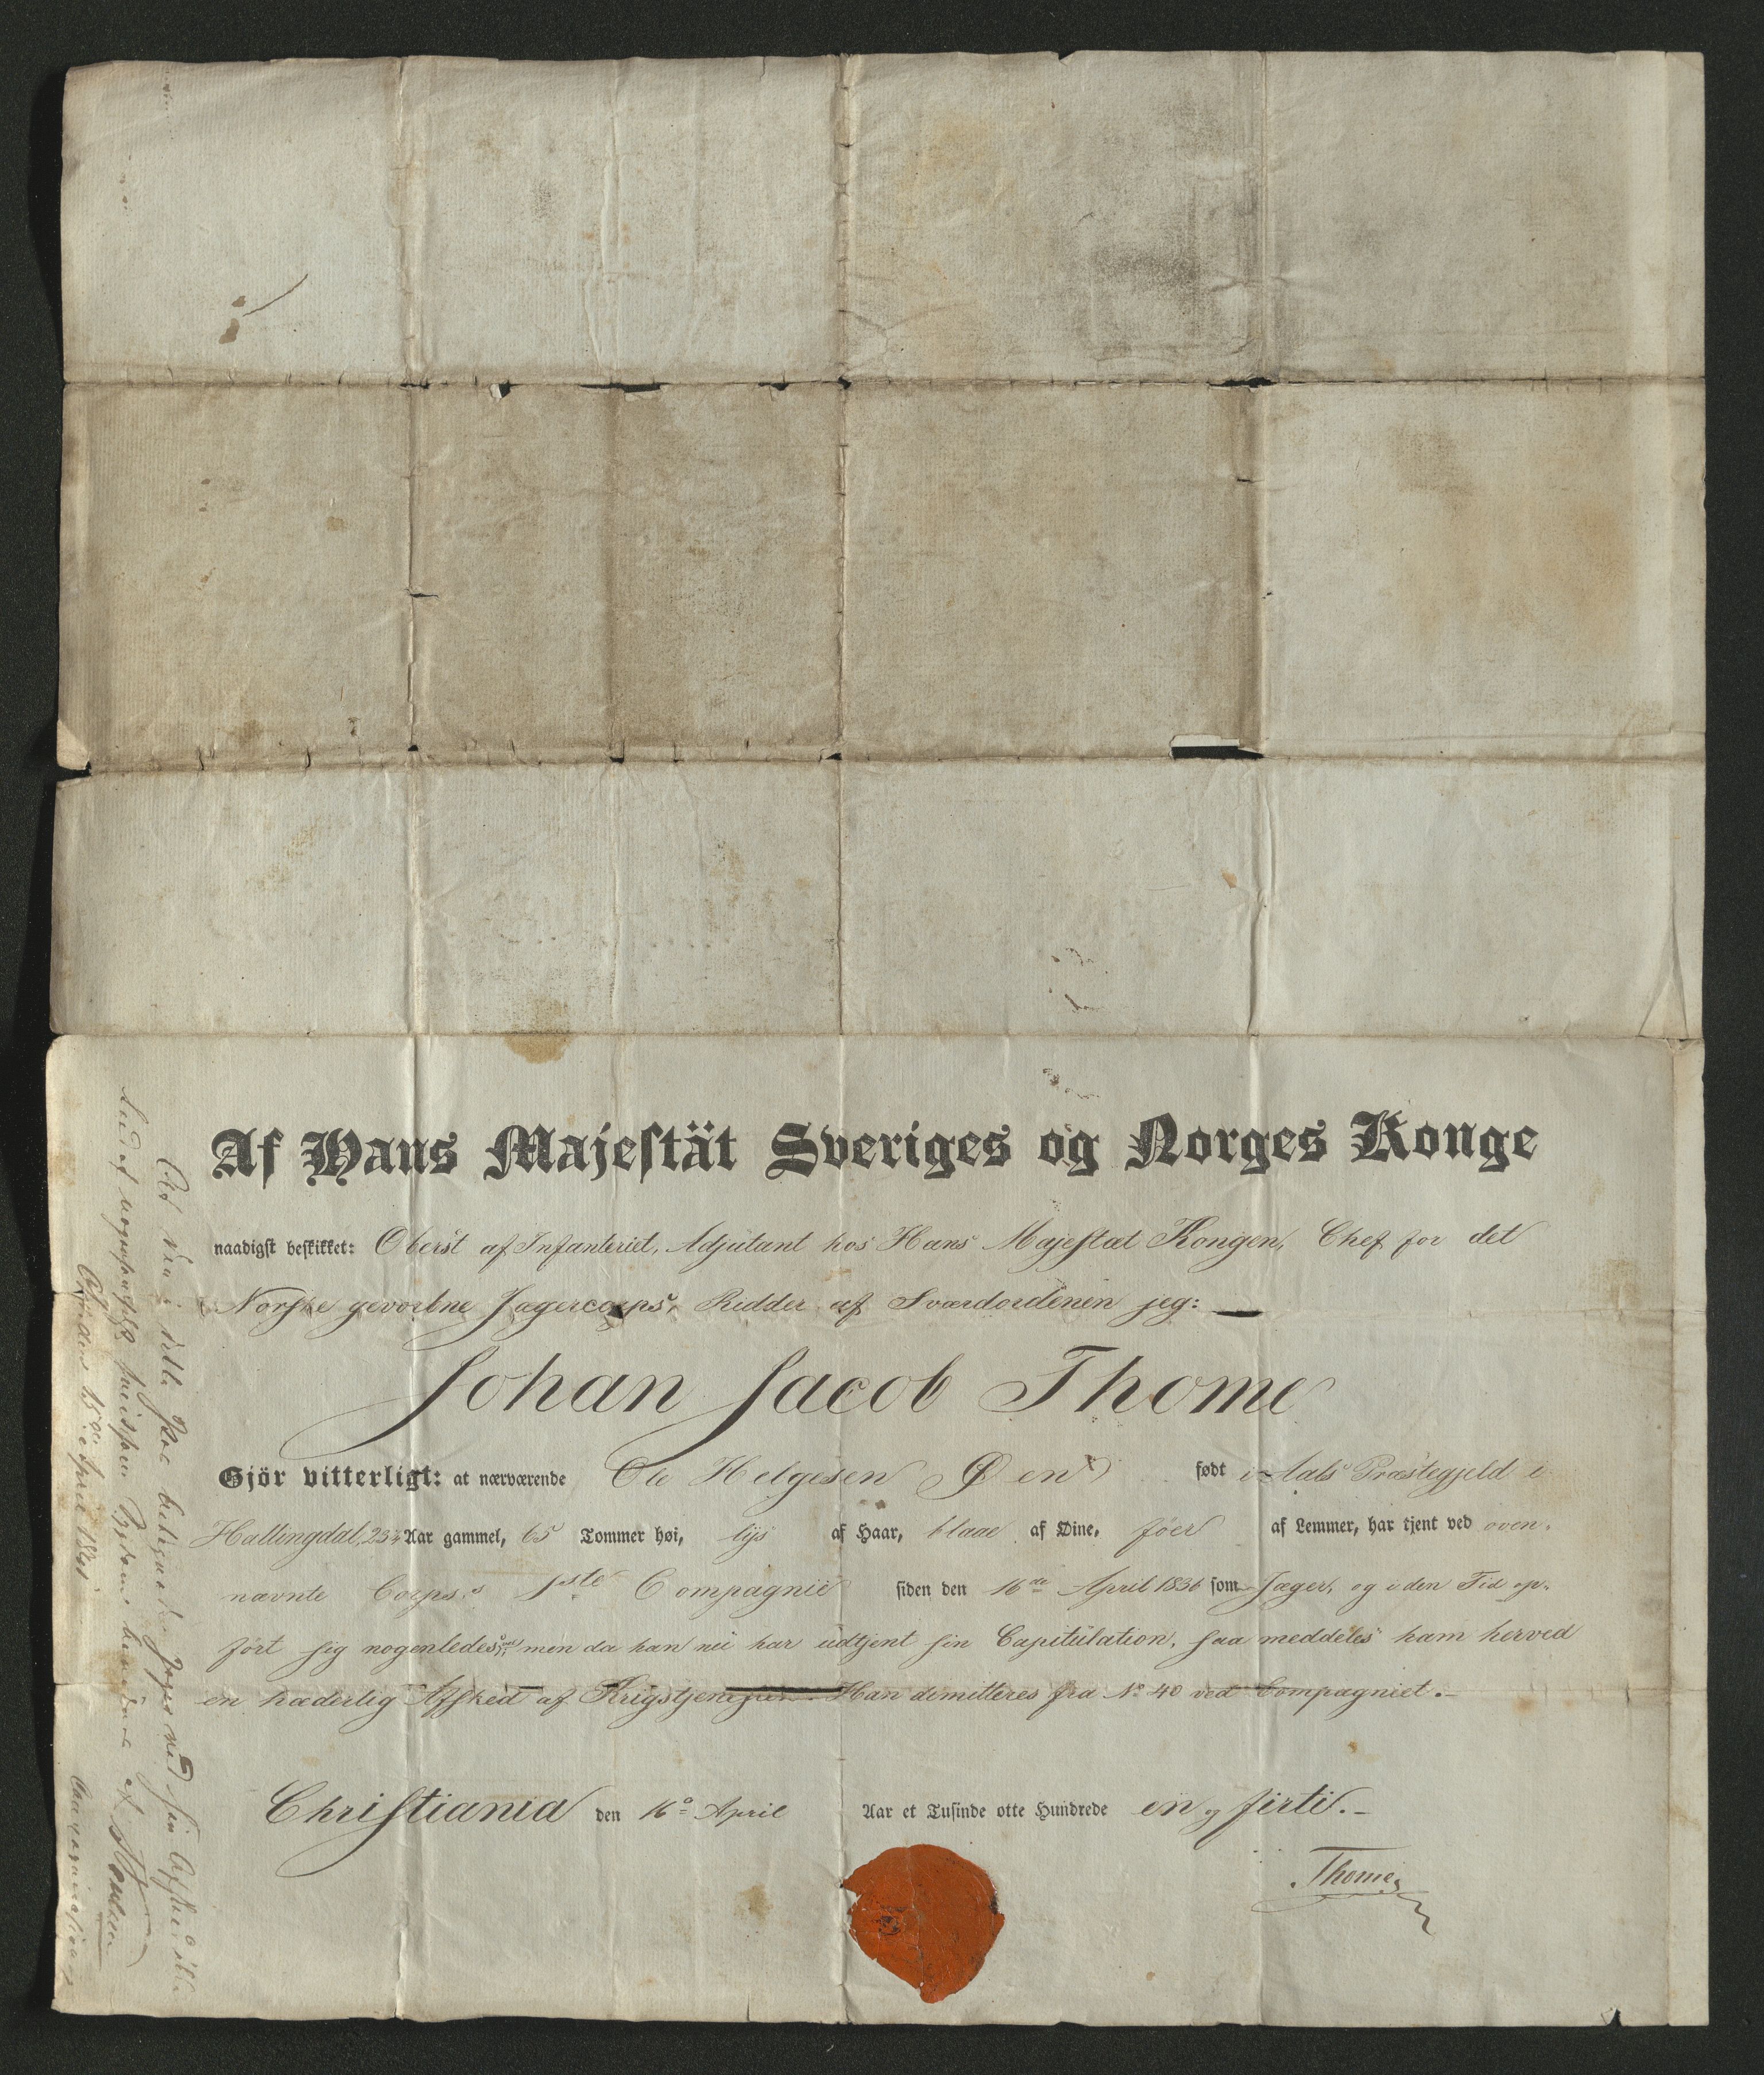 Af Hans Majestät Sveriges og Norges Konge
naadigst beskikket: Oberst af Infanteriet, Adjutant hos Hans Majestæt Kongen, Chef for det
Norske gevorbne Jægercorps, Ridder af Sværdordenen jeg:
Johan Jacob Thome
Gjör vitterligt: at nærværende Ole Helgesen Øen født i Aals Præstegjeld i
Hallingdal, 23¾ Aar gammel, 65 Tommer høi, lys af Haar, blaae af Øine, før af Lemmer, har tjent ved oven-
nævnte Corps's 1ste Compagnie siden den 16de April 1836 som Jæger, og i den Tid op-
ført sig nogenledes men da han nu har udtjent sin Capitulation, saa meddeles ham herved
en hæderlig Afsked af Krigstjenesten. Han dimitteres fra No 40 ved Compagniet.-
Christiania den 16o April Aar et Tusinde otte Hundrede en og firti.-
Thome
At med sin Afsked
April 1841